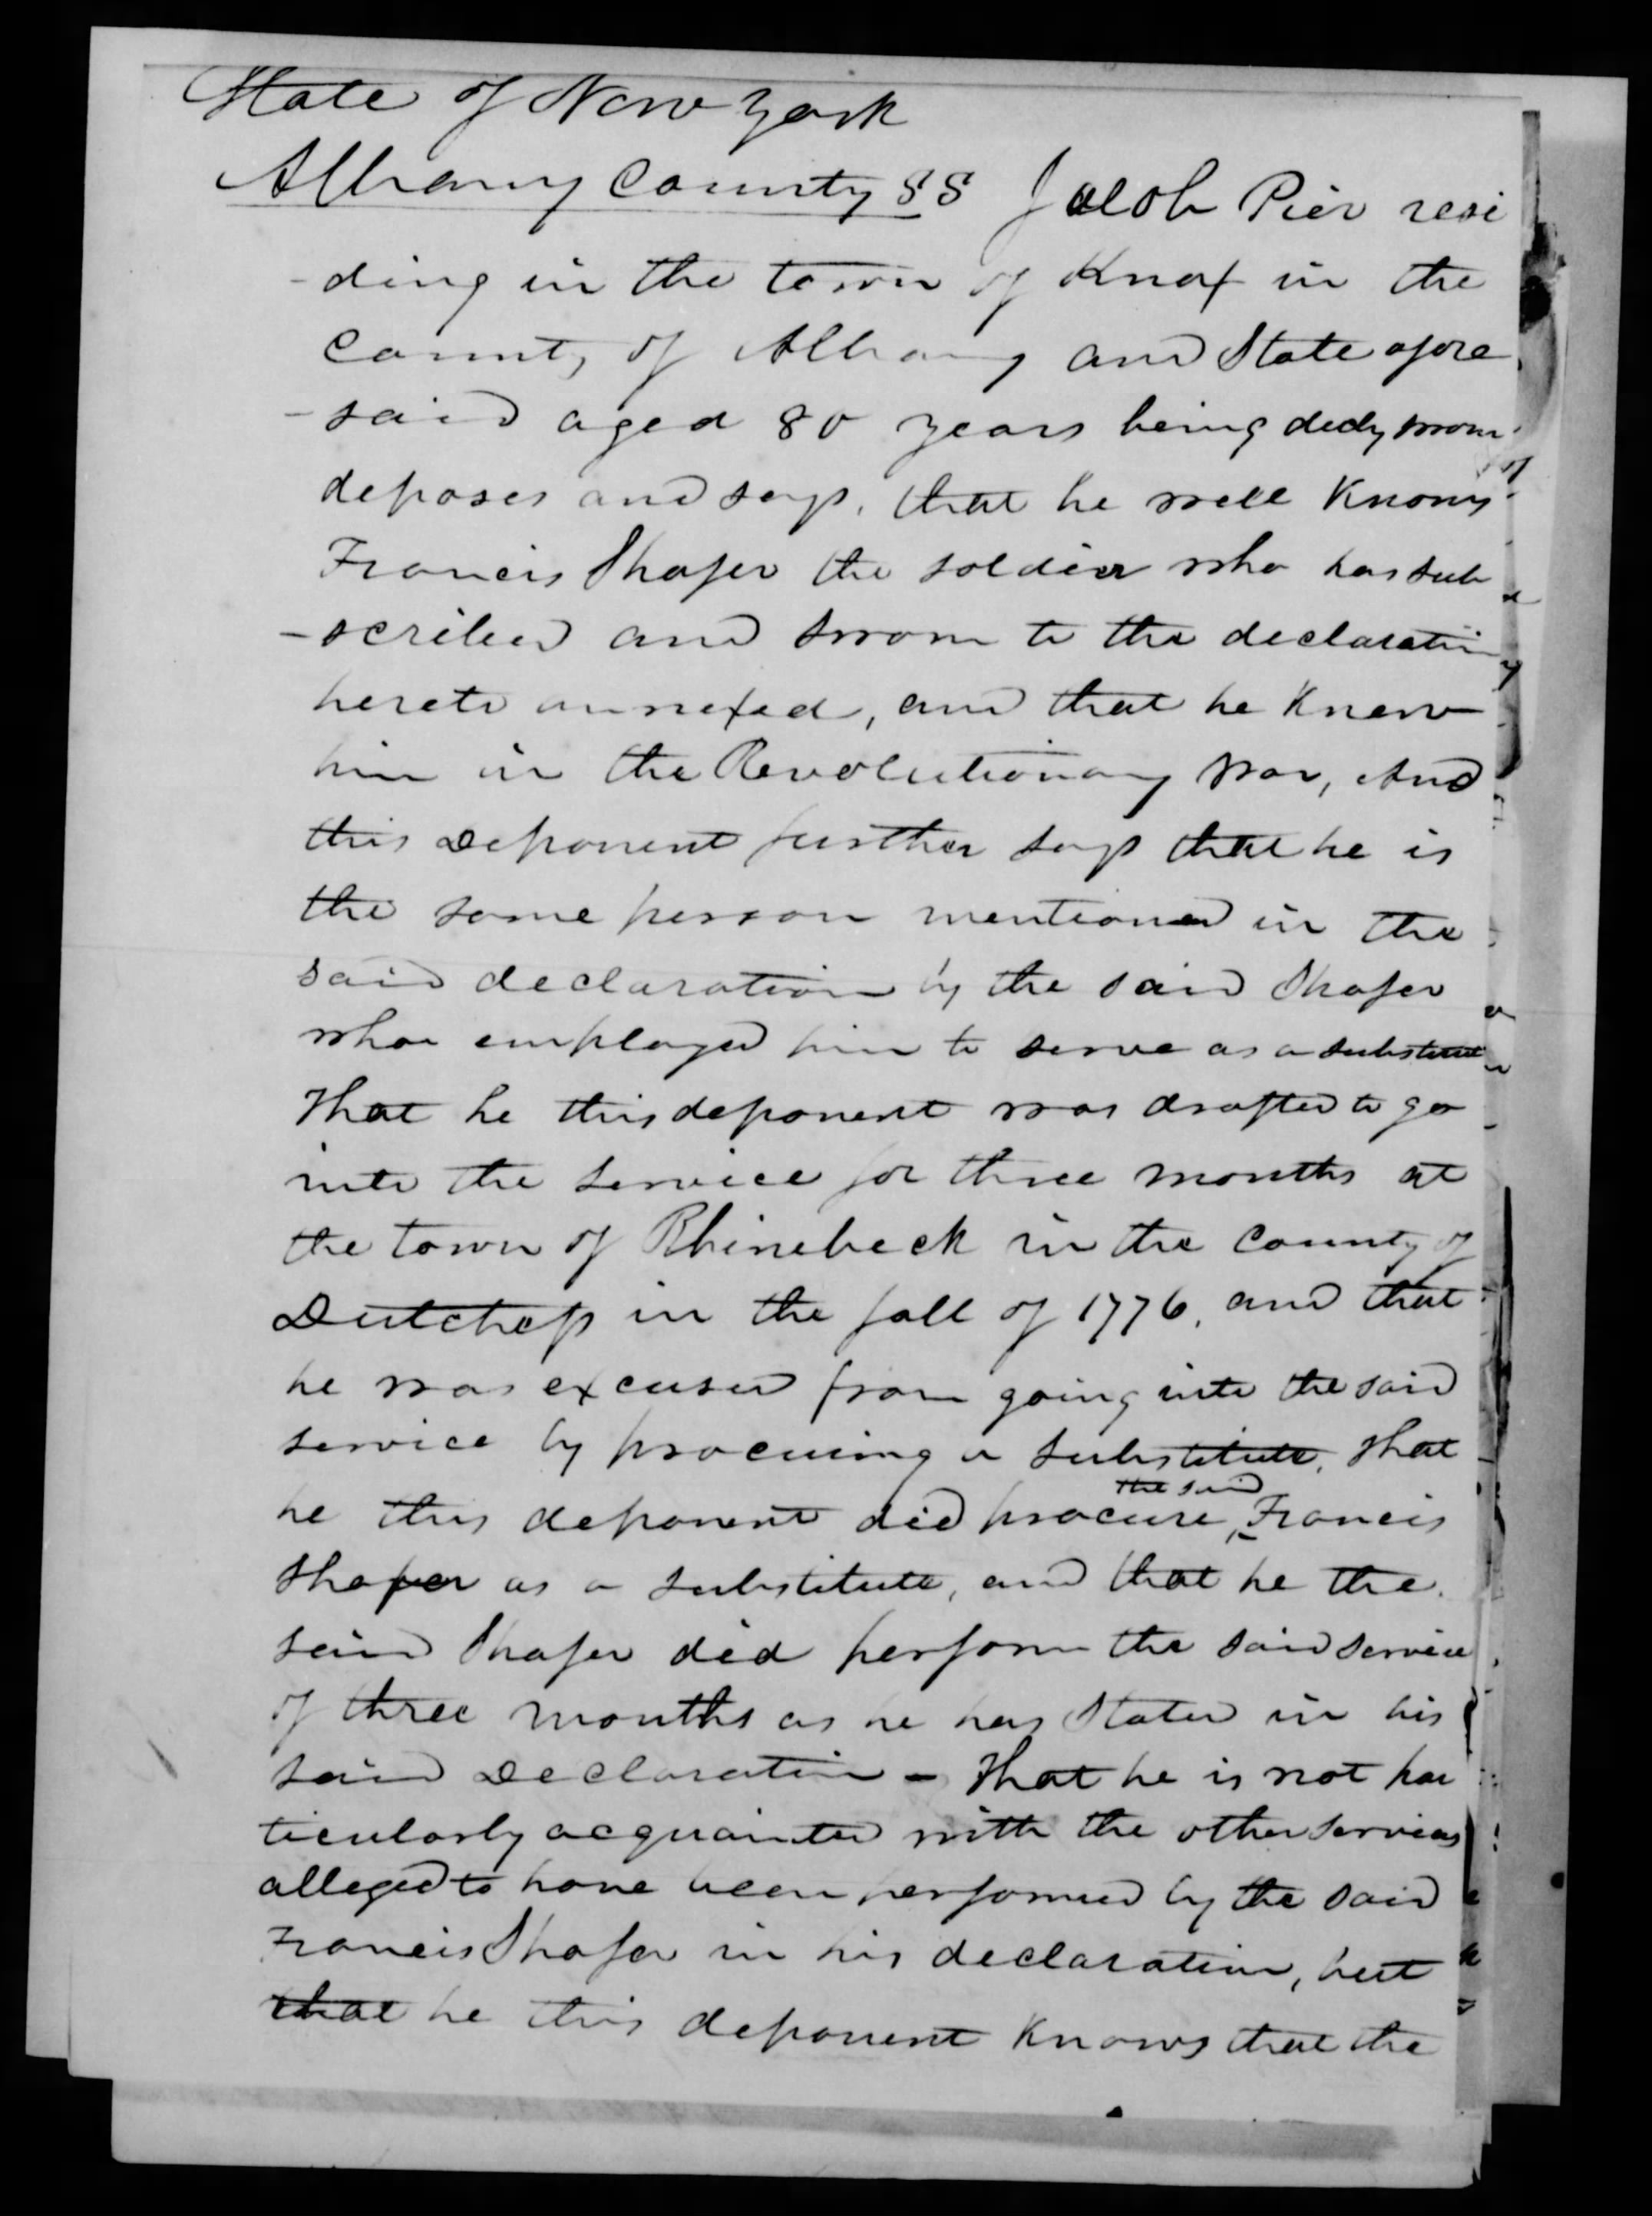 State of New York
Albany County SS Jacob Pier resi
-ding in the town of Knox in the
County of Albany and State afore
-said aged 80 years being duly sworn
deposes and says, that he well knows
Francis Shafer the soldier who has sub
-scribed and sworn to the declaration
hereto annexed, and that he knew
him in the Revolutionary War, And
this Deponent further says that he is
the same person mentioned in the
said declaration by the said Shafer
who employed him to serve as a substitute
That he this deponent was drafted to go
into the service for three months at
the town of Rhinebeck in the County of
Dutchess in the fall of 1776, and that
he was excused from going into the said
service by procuring a substitute, That
he this deponent did procure, the said Francis
Shafer as a substitute, and that he the
said Shafer did perform the said service
of three months as he has Stated in his
said Declaration - That he is not par
ticularly acquainted with the other services
alleged to have been performed by the said
Francis Shafer in his declaration, but
that he this deponent knows that the